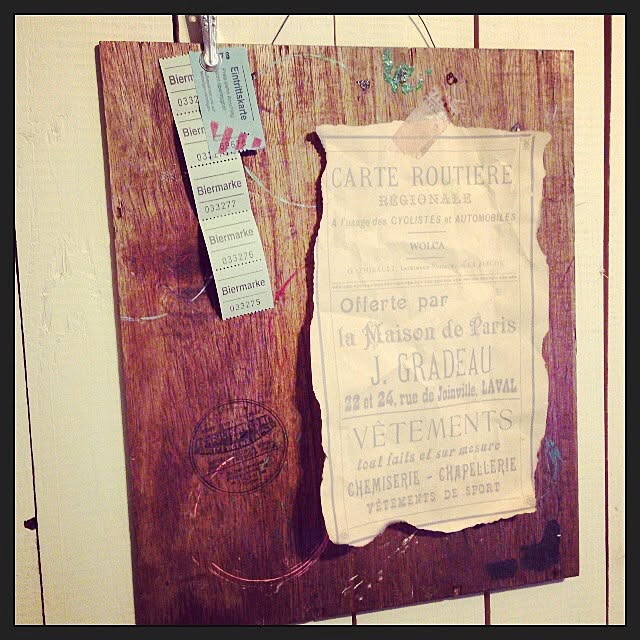 Bierm
033
Bierm
Biermarke
033277
Biermarke
033276
Biermarke
033275
Eintrittskarte
CARTE ROUTIÈRE
RÉGIONALE
A l'usage des CYCLISTES et AUTOMOBILES
WOLCA
Offerte par
la Maison de Paris
J. GRADEAU
22 et 24, rue de Joinville, LAVAL
VÊTEMENTS
tout faits et sur mesure
CHEMISERIE - CHAPELLERIE
VÊTEMENTS DE SPORT